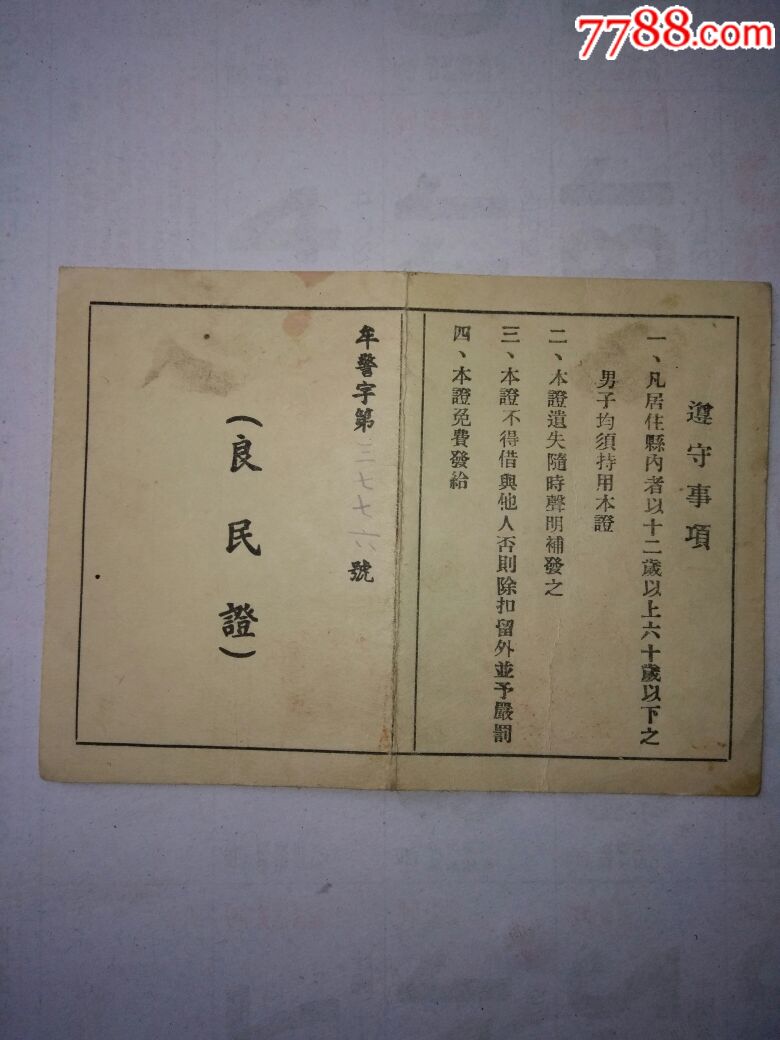 7788.com
遵守事項
一、凡居住縣內者以十二歲以上六十歲以下之
男子均須持用本證
二、本證遺失隨時聲明補發之
三、本證不得借與他人否則除扣留外並予嚴罰
四、本證免費發給
牟警字第三七七六號
（良民證）